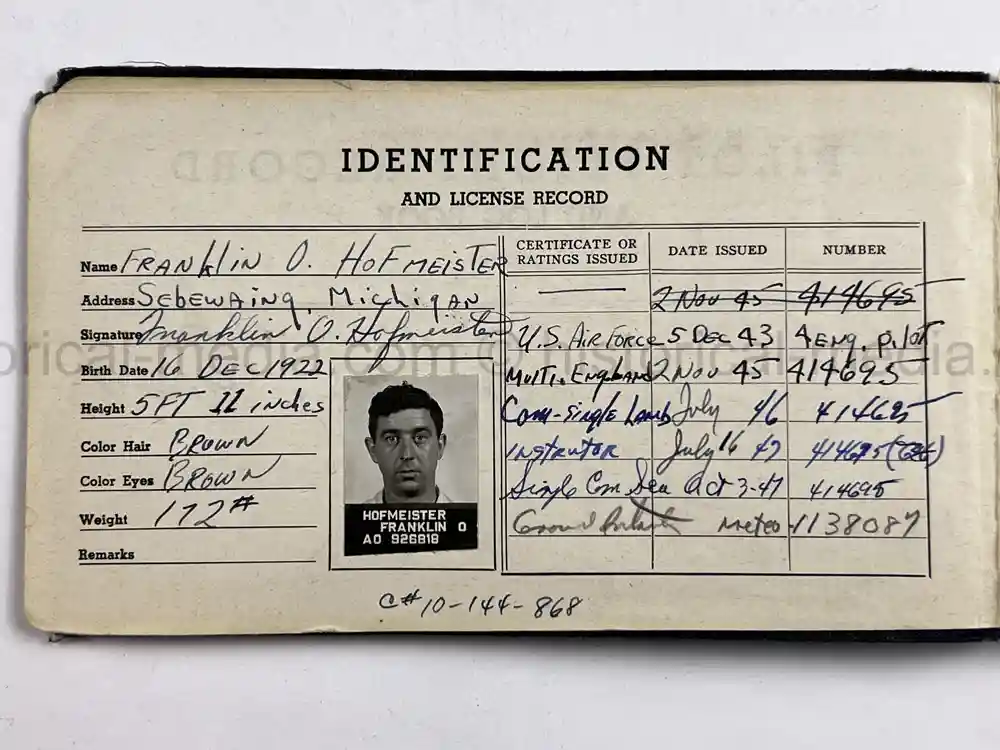 IDENTIFICATION
AND LICENSE RECORD
Name FRANKLIN O. HOFMEISTER
Address SEBEWAING, MICHIGAN
Signature Franklin O. Hofmeister
Birth Date 16 DEC 1922
Height 5FT 11 inches
Color Hair BROWN
Color Eyes BROWN
Weight 172#
Remarks
HOFMEISTER
FRANKLIN O
AO 926818
CERTIFICATE OR RATINGS ISSUED DATE ISSUED NUMBER
2 Nov 45 414695
U.S. AIR FORCE 5 DEC 43 4 ENG. pilot
Multi. Eng Land 2 Nov 45 414695
Com-Single Land July 46 414695
Instrutor July 16 47 414695
Single Com Sea Oct 3-47 414695
Ground Meteo 1138087
C# 10-144-868